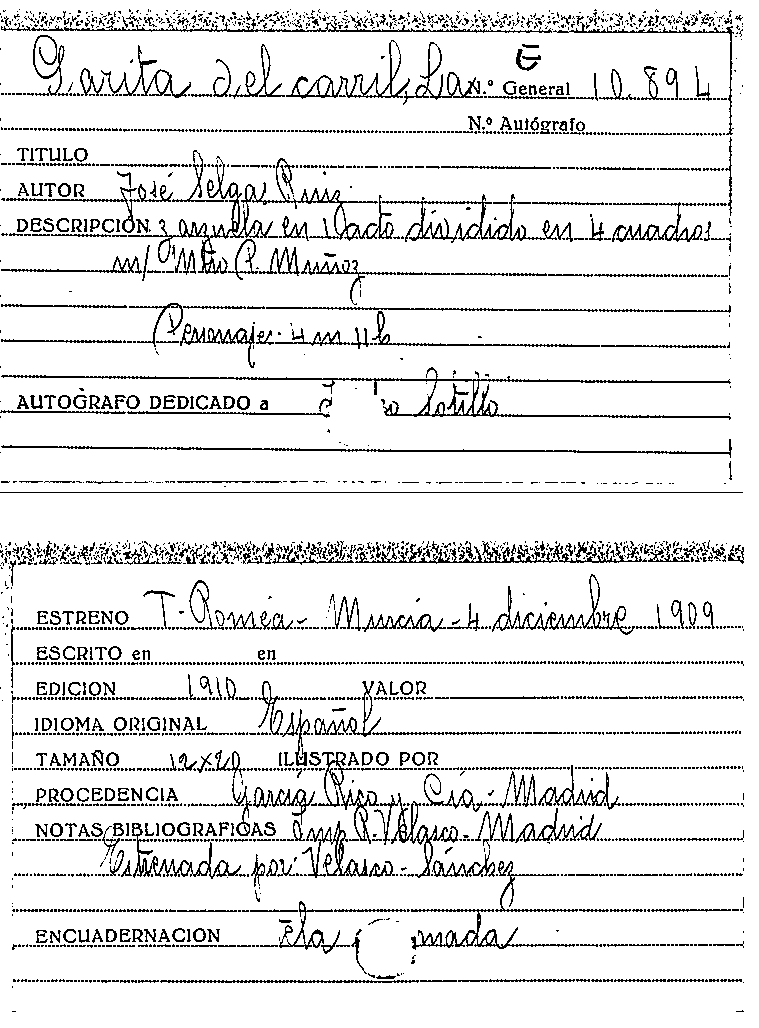 G
Garita del carril, La N.º General 10.894
N.º Autógrafo
TITULO
AUTOR José Selgas Ruiz
DESCRIPCIÓN zarzuela en 1 acto dividido en 4 cuadros
m/ Mtro P. Muñoz
Personajes 4 m 11 h
AUTOGRAFO DEDICADO a Sotillo
ESTRENO T. Roméa - Murcia - 4 diciembre 1909
ESCRITO en en
EDICION 1910 VALOR
IDIOMA ORIGINAL Español
TAMAÑO 12x20 ILUSTRADO POR
PROCEDENCIA García Rico y Cía - Madrid
NOTAS BIBLIOGRAFICAS Imp R. Velasco - Madrid
Estrenada por Velasco - Sánchez
ENCUADERNACION